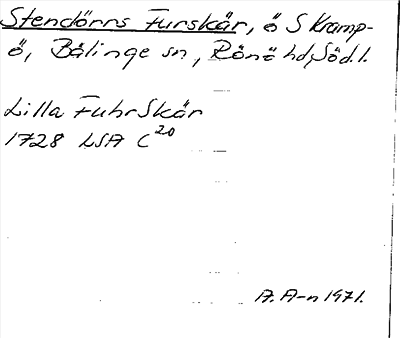 Stendörrs Furskär, ö S Kramp-
ö, Bälinge sn, Rönö hd, Söd.l.
Lilla FuhrSkär
1728 LSA C20
A. A-n 1971.